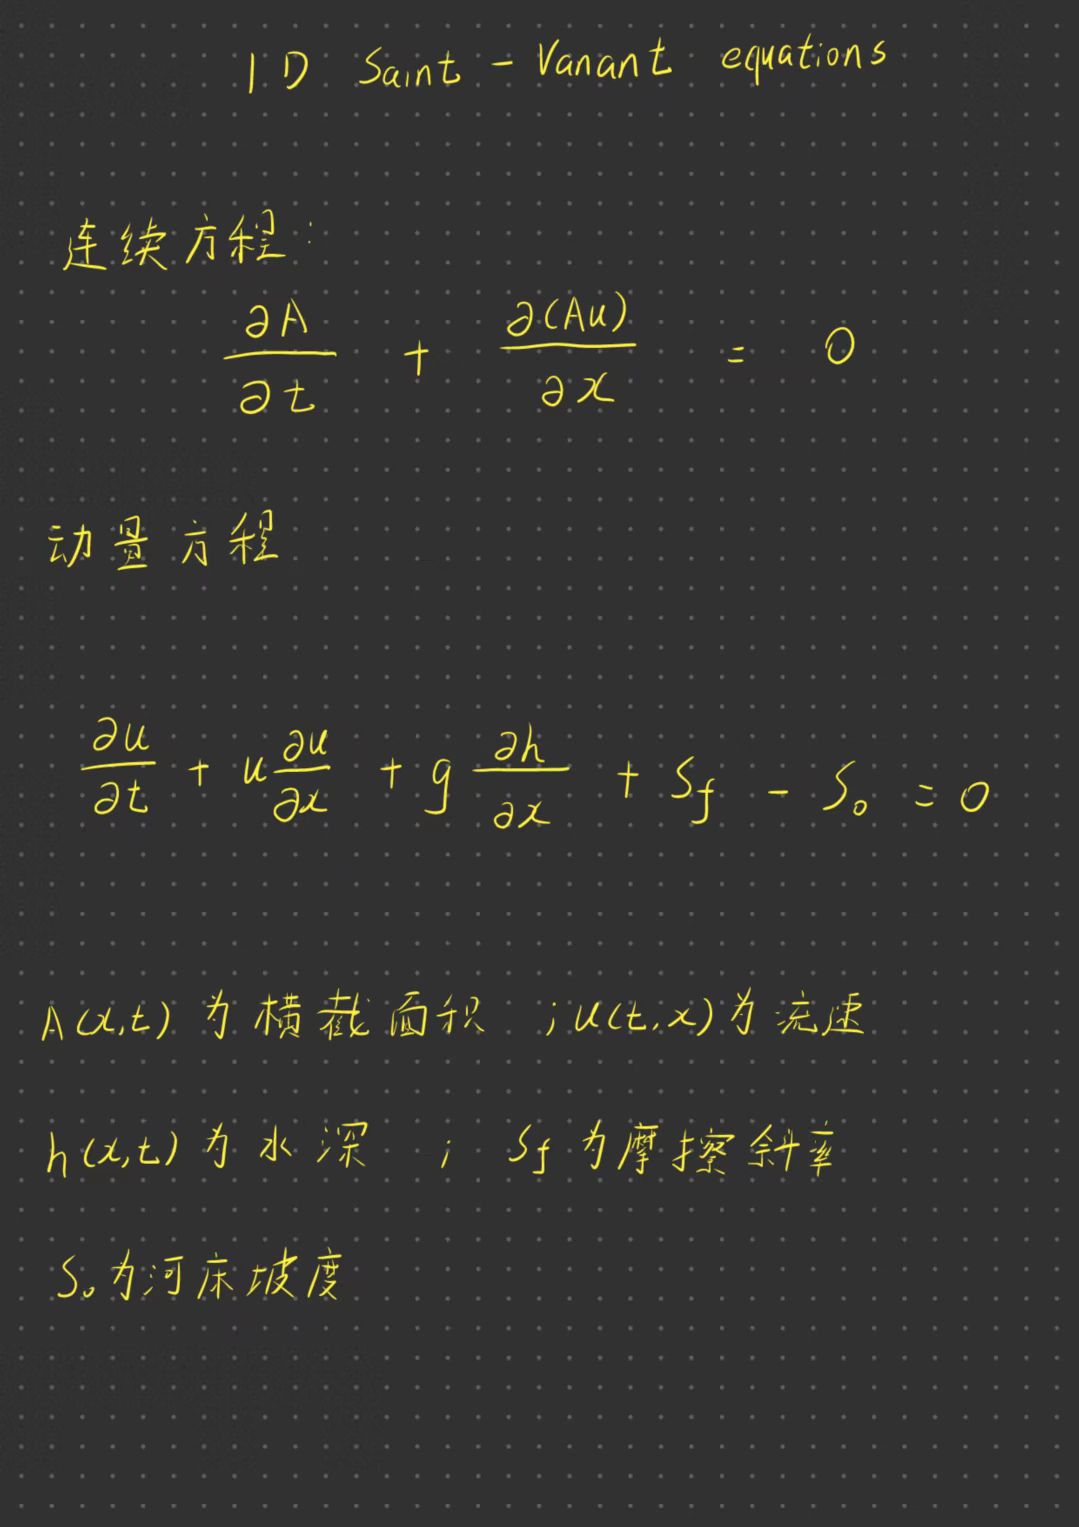 1D Saint - Vanant equations
连续方程:
∂A/∂t + ∂(Au)/∂x = 0
动量方程
∂u/∂t + u ∂u/∂x + g ∂h/∂x + Sf - S₀ = 0
A(x,t) 为横截面积 ; u(t,x) 为流速
h(x,t) 为水深 ; Sf 为摩擦斜率
S₀为河床坡度